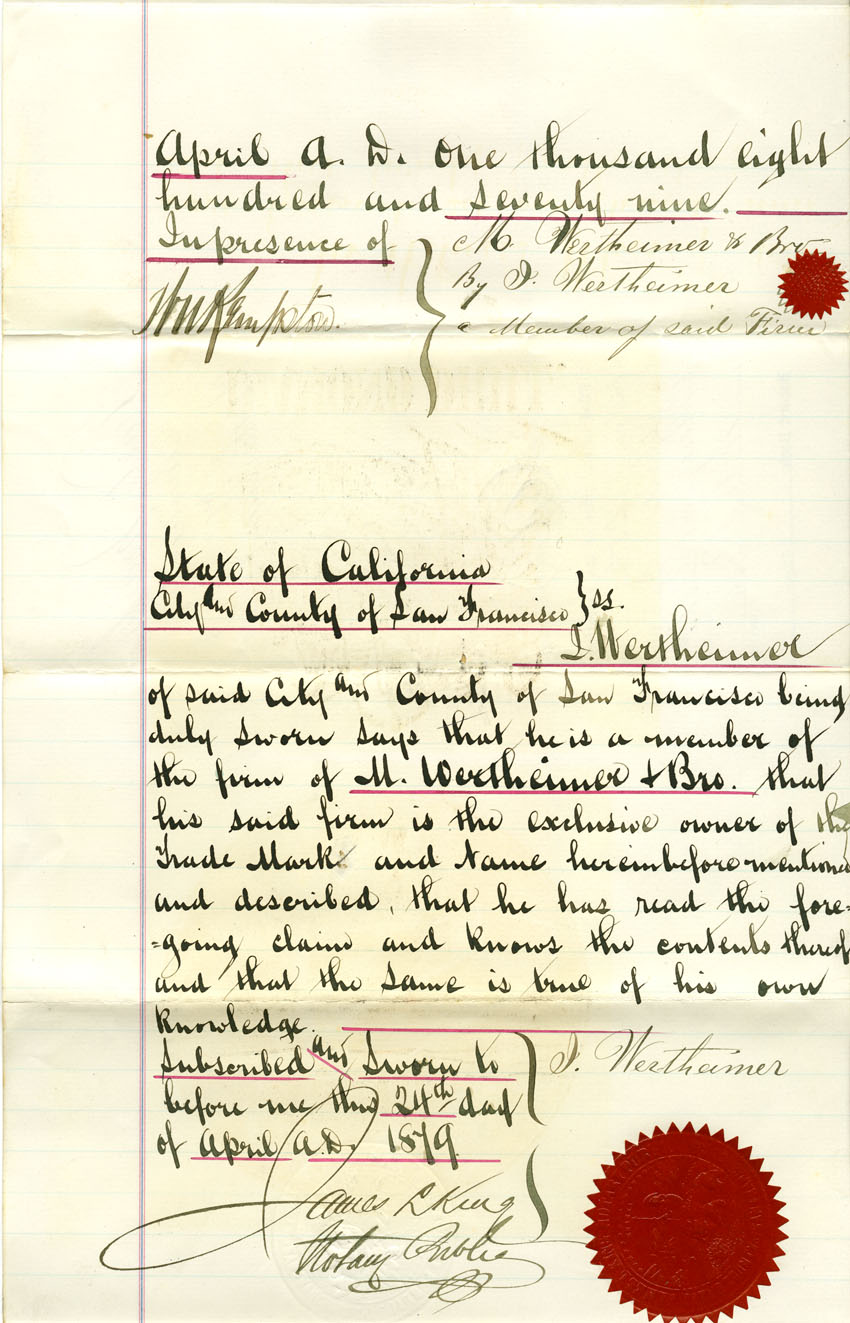 April A. D. One thousand eight
hundred and Seventy nine.
In presence of
M. Wertheimer & Bro
By I. Wertheimer
a Member of said Firm
Wm Kempston.
State of California
City and County of San Francisco } ss.
I. Wertheimer
of said City and County of San Francisco being
duly Sworn says that he is a member of
the firm of M. Wertheimer & Bro. that
his said firm is the exclusive owner of the
Trade Mark and Name hereinbefore mentioned
and described, that he has read the fore-
-going claim and knows the contents thereof
and that the same is true of his own
knowledge.
Subscribed and Sworn to
I. Wertheimer
before me this 24th day
of April A.D. 1879.
James L King
Notary Public